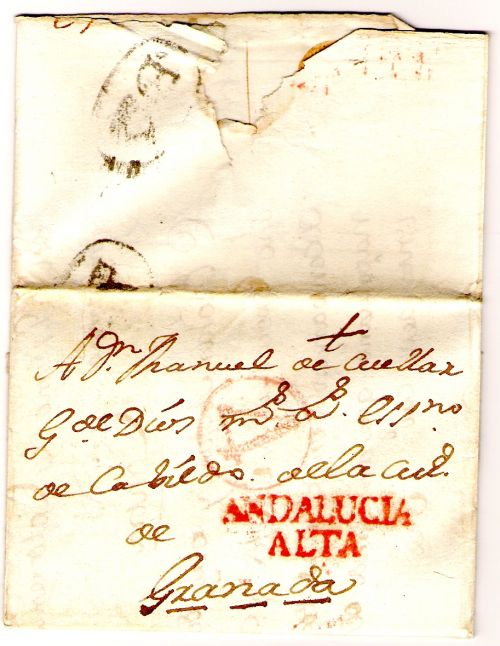 A Dn. Manuel de Cuellar
G. de Díos ms. as. Essno
de Cabildo de la Ciud.
ANDALUCIA
ALTA
de
Granada